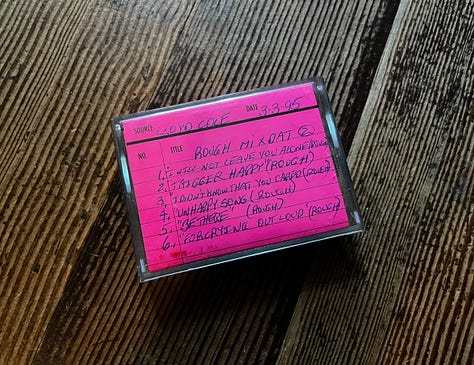 SOURCE LLOYD COLE DATE 3-3-95
NO. TITLE ROUGH MIX DAT 2
1. I WILL NOT LEAVE YOU ALONE (ROUGH)
2. "TRIGGER HAPPY" (ROUGH)
3. I DIDN'T KNOW THAT YOU CARED (ROUGH)
4. "UNHAPPY SONG" (ROUGH)
5. "BE THERE" (ROUGH)
6. "FOR CRYING OUT LOUD" (ROUGH)